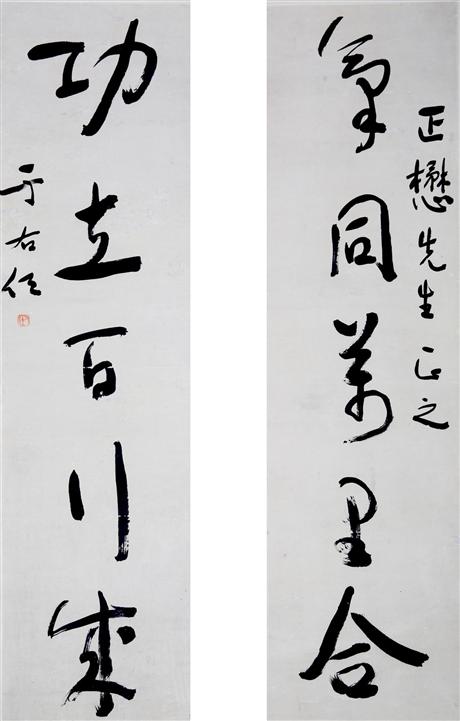 正懋先生正之
氣同萬里合
功立百行成
于右任